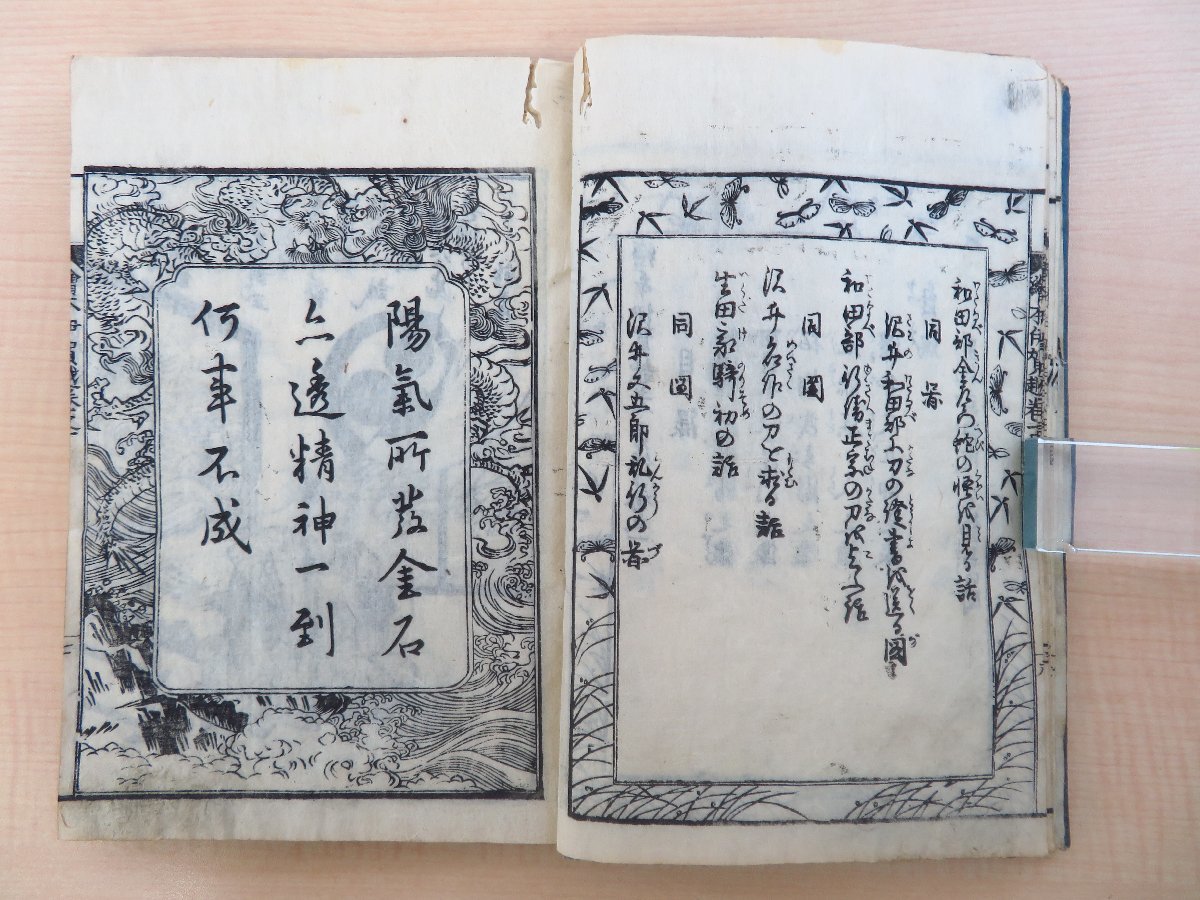 和田部金左衛門蛇の怪を見る話
同 圖
沢井和田部に刀の證書を送る圖
和田部行衛正宗の刀を
同 圖
沢井名作の刀を求る話
生田家騎初の話
同 圖
沢井又五郎乱行の圖
陽氣所發金石
亦透精神一到
何事不成